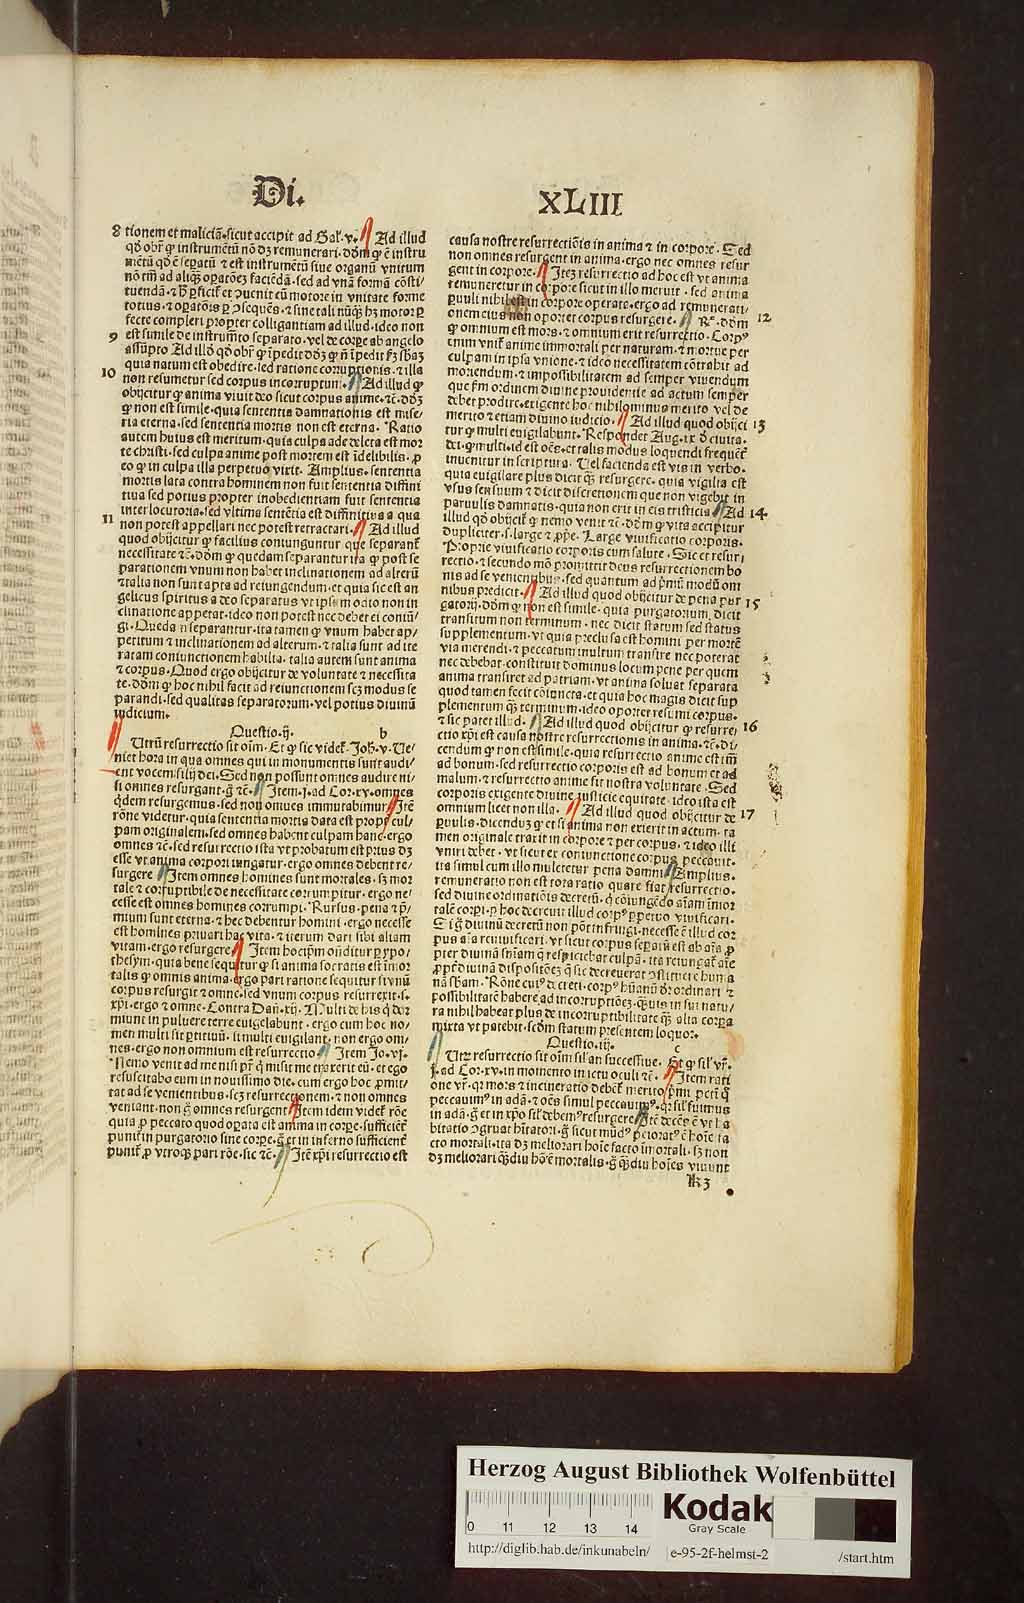 Di. XLIII
8 tionem et maliciā. sicut accipit ad Gal. v. Ad illud
qđ obr̄ ꝙ instrumētū nō dꝫ remunerari. dōm ꝙ ē instru
mētū qđ ē sepatū ⁊ est instrumētū siue organū vnitum
nō tm̄ ad aliqͣs oꝑatōeꝫ faciēdā. sed ad vnā formā cōsti/
tuendā. ⁊ hꝰ ꝑficiꝉ et ꝯuenit cū motore in vnitate forme
totius. ⁊ oꝑatōis ꝑ ꝯsequēs. ⁊ sine tali nūqͣꝫ hꝫ motor ꝑ
fecte compleri propter colligantiam ad illud. ideo non
9 est simile de instrumēto separato. vel de corꝑe ab angelo
assūpto Ad illđ qđ obr̄ ꝙ īpedit dōꝫ ꝙ n̄ īpedit
quia natum est obedire. sed ratione corruptionis. ⁊ illa
10 non resumetur sed corpus incorruptum. Ad illud ꝙ
obijcitur ꝙ anima viuit deo sicut corpus anime. ⁊c̄. dōꝫ
ꝙ non est simile. quia sententia damnationis est mise/
ria eterna. sed sententia mortis non est eterna. Ratio
autem huius est meritum. quia culpa adedeleta est mor
te christi. sed culpa anime post mortem est īdelibilis. ꝓ
eo ꝙ in culpa illa perpetuo viuit. Amplius. sententia
mortis lata contra hominem non fuit sententia diffini
tiua sed potius propter inobedientiam fuit sententia
interlocutoria. sed vltima sentētia est diffinitiua a qua
11 non potest appellari nec potest retractari. Ad illud
quod obijcitur ꝙ facilius coniunguntur que separant̄
necessitate ⁊c̄. dōm ꝙ quedam separantur ita ꝙ post se
parationem vnum non habet inclinationem ad alterū
⁊ talia non sunt apta ad reiungendum. et quia sic est an
gelicus spiritus a deo separatus vt ipsum odio non in
clinatione appetat. ideo non potest nec debet ei coniū/
gi. Quedā n̄ separantur. ita tamen ꝙ vnum habet ap/
petitum ⁊ inclinationem ad alterum. ⁊ talia sunt ad ite
ratam coniunctionem habilia. talia autem sunt anima
⁊ corpus. Quod ergo obijcitur de voluntate ⁊ necessita
te. dōm ꝙ hoc nihil facit ad reiunctionem scꝫ modus se
parandi. sed qualitas separatorum. vel potius diuinū
iudicium.
Questio. ij. b
Utrū resurrectio sit oīm. Et ꝙ sic videꝉ. Joh. v. Ue/
niet hora in qua omnes qui in monumentis sunt audi/
ent vocem filij dei. Sed non possunt omnes audire ni/
si omnes resurgant. ḡ ⁊c̄. Item. j. ad Cor. xv. omnes
qͥdem resurgemus. sed non omnes immutabimur. Itē
rōne videtur. quia sententia mortis data est propꝉ cul/
pam originalem. sed omnes habent culpam hanc. ergo
omnes ⁊c̄. sed resurrectio ista vt probatum est prius dꝫ
esse vt anima corpori iungatur. ergo omnes debent re/
surgere Item omnes homines sunt mortales. sꝫ mor
tale ⁊ corruptibile de necessitate corrumpitur. ergo ne/
cesse est omnes homines corrumpi. Rursus. pena ⁊ p̄/
mium sunt eterna. ⁊ hec debentur homini. ergo necesse
est homines priuari hac vita. ⁊ iterum dari sibi aliam
vitam. ergo resurgere. Item hoc ipm̄ onditur ꝑ ypo/
thesym. quia bene sequitur ꝙ si anima socratis est īmor
talis ꝙ omnis anima. ergo pari ratione sequitur si vnū
corpus resurgit ⁊ omne. sed vnum corpus resurrexit. s.
xp̄i. ergo ⁊ omne. Contra Dan̄. xij. Multi de his qͥ dor
miunt in puluere terre euigelabunt. ergo cum hoc no/
men multi sit ꝑtitiuū. si multi euigilant. non ergo om/
nes. ergo non omnium est resurrectio. Item Jo. vj.
Nemo venit ad me nisi pr̄ qͥ misit me traxerit eū. et ego
resuscitabo eum in nouissimo die. cum ergo hoc ꝓmit/
tat ad se venientibus. scꝫ resurrectionem. ⁊ non omnes
veniant. non ḡ omnes resurgent. Item idem videꝉ rōe
quia ꝓ peccato quod oꝑata est anima in corꝑe. sufficiēꝉ
punitꝉ in purgatorio sine corꝑe. ḡ et in inferno sufficienꝉ
punitꝉ ꝓ vtroqꝫ pari rōe. sic ⁊c̄. Itē xp̄i resurrectio est
causa nostre resurrectiōis in anima ⁊ in corpore. Sed
non omnes resurgent in anima. ergo nec omnes resur
gent in corpore. Iteꝫ resurrectio ad hoc est vt anima
remuneretur in corpore sicut in illo meruit. sed anima
ꝑuuli nihil est in corpore operate. ergo ad remunerati/
onem eius non oportet corpus resurgere. Rͦ. dōm 12
ꝙ omnium est mors. ⁊ omnium erit resurrectio. Corpꝰ
enim vniꝉ anime immortali per naturam. ⁊ mortue per
culpam in ipsa vnione. ⁊ ideo necessitatem cōtrabit ad
moriendum. ⁊ impossibilitatem ad semper viuendum
que ẜm ordinem diuine prouidentie ad actum semper
debet prodire. exigente hoc nihilominus merito vel de
merito ⁊ etiam diuino iudicio. Ad illud quod obijci 13
tur ꝙ multi euigilabunt. Respondet Aug. ix ð ciuita.
dei. ꝙ multi. id est oēs. et talis modus loquendi frequēꝉ
inuenitur in scriptura. Uel facienda est vis in verbo.
quia euigilare plus dicit qͣꝫ resurgere. quia vigilia est
vsus sensuum ⁊ dicit discretionem que non vigebit in
paruulis damnatis. quia non erit in eis tristicia Ad 14
illud qđ obijciꝉ ꝙ nemo venit ⁊c̄. dōm ꝙ vita accipitur
dupliciter. s. large ⁊ ꝓpe. Large viuificatio corporis.
Proprie viuificatio corporis cum salute. Sic et resur/
rectio. ⁊ secundo mō promittit deus resurrectionem bo
nis ad se venientibus. sed quantum ad pͥmū modū om
nibus predicit. Ad illud quod obijcitur de pena pur 15
gatorij. dōm ꝙ non est simile. quia purgatorium dicit
transitum non terminum. nec dicit statum sed status
supplementum. vt quia preclusa est homini per mortē
via merendi. ⁊ peccatum multum transire nec poterat
nec debebat. constituit dominus locum pene per quem
anima transiret ad patriam. vt anima soluat separata
quod tamen fecit cōiuncta. et quia hoc magis dicit sup
plementum qͣꝫ terminum. ideo oportet resumi corpus.
⁊ sic patet illud. Ad illud quod obijcitur ꝙ resurre/ 16
ctio xp̄i est causa nostre resurrectionis in anima. ⁊c̄. di/
cendum ꝙ non est simile. quia resurrectio anime est tm̄
ad bonum. sed resurrectio corporis est ad bonum et ad
malum. ⁊ resurrectio anime sit nostra voluntate. Sed
corporis exigente diuine iusticie equitate. ideo ista est
omnium licet non illa. Ad illud quod obijcitur de 17
ꝑuulis. dicenduꝫ ꝙ et si anima non exierit in actum. ta
men originale traxit in corpore ⁊ per corpus. ⁊ ideo illi
vniri debet. vt sicut ex coniunctione corpus peccauit.
ita simul cum illo muletetur pena damni. Amplius.
remuneratio non est tota ratio quare fiat resurrectio.
sed diuine ordinatiōis decretū. qͥ cōiungēdo aīam īmor
talē corꝑi. ꝑ hoc decreuit illud corpꝰ ꝑpetuo viuificari.
Si ḡ diuinū decretū non pōt infringi. necesse ē illud cor
pus aīa reuiuificari. vt sicut corpus seꝑatū est ab aīa ꝓ
pter diuinā sniam qͥ respiciebat culpā. ita reiungaꝉ aīe
ꝓpꝉ diuinā dispositōeꝫ qͥ sic decreuerat ꝯstituere humā
nā sꝫam. Rōne cuiꝰ decreti. corpꝰ hūanū dꝫ ordinari ⁊
possibilitatē habere ad incorruptiōeꝫ. qͣuis in sui natu/
ra nihil habeat plus de incorruptibilitate qͣꝫ alia corꝑa
mixta vt patebit. scdm̄ statum presentem loquor.
Questio. iij. c
Utꝝ resurrectio sit oīm sil̄ an successiue. Et ꝙ sil̄ vr̄.
j. ad Cor. xv. in momento in ictu oculi ⁊c̄. Item rati
one vr̄. qꝛ mors ⁊ incineratio debetꝉ merito pͥmi pctī qͥ
peccauimꝰ in adā. ⁊ oēs simul peccauimꝰ. qꝛ sil̄ fuimus
in adā. ḡ et in xp̄o sil̄ debemꝰ resurgere. Itē decēs ē vt ha
bitatio ꝯgruat hītatori. ḡ sicut mūdꝰ peioratꝰ ē hoīe fa
cto mortali. ita dꝫ meliorari hoīe facto īmortali. sꝫ non
dꝫ meliorari qͣꝫdiu hō ē mortalis. ḡ qͣꝫdiu hoīes viuunt
kk 3
Herzog August Bibliothek Wolfenbüttel
0 11 12 13 14
Kodak
Gray Scale
http://diglib.hab.de/inkunabeln/ e-95-2f-helmst-2 /start.htm